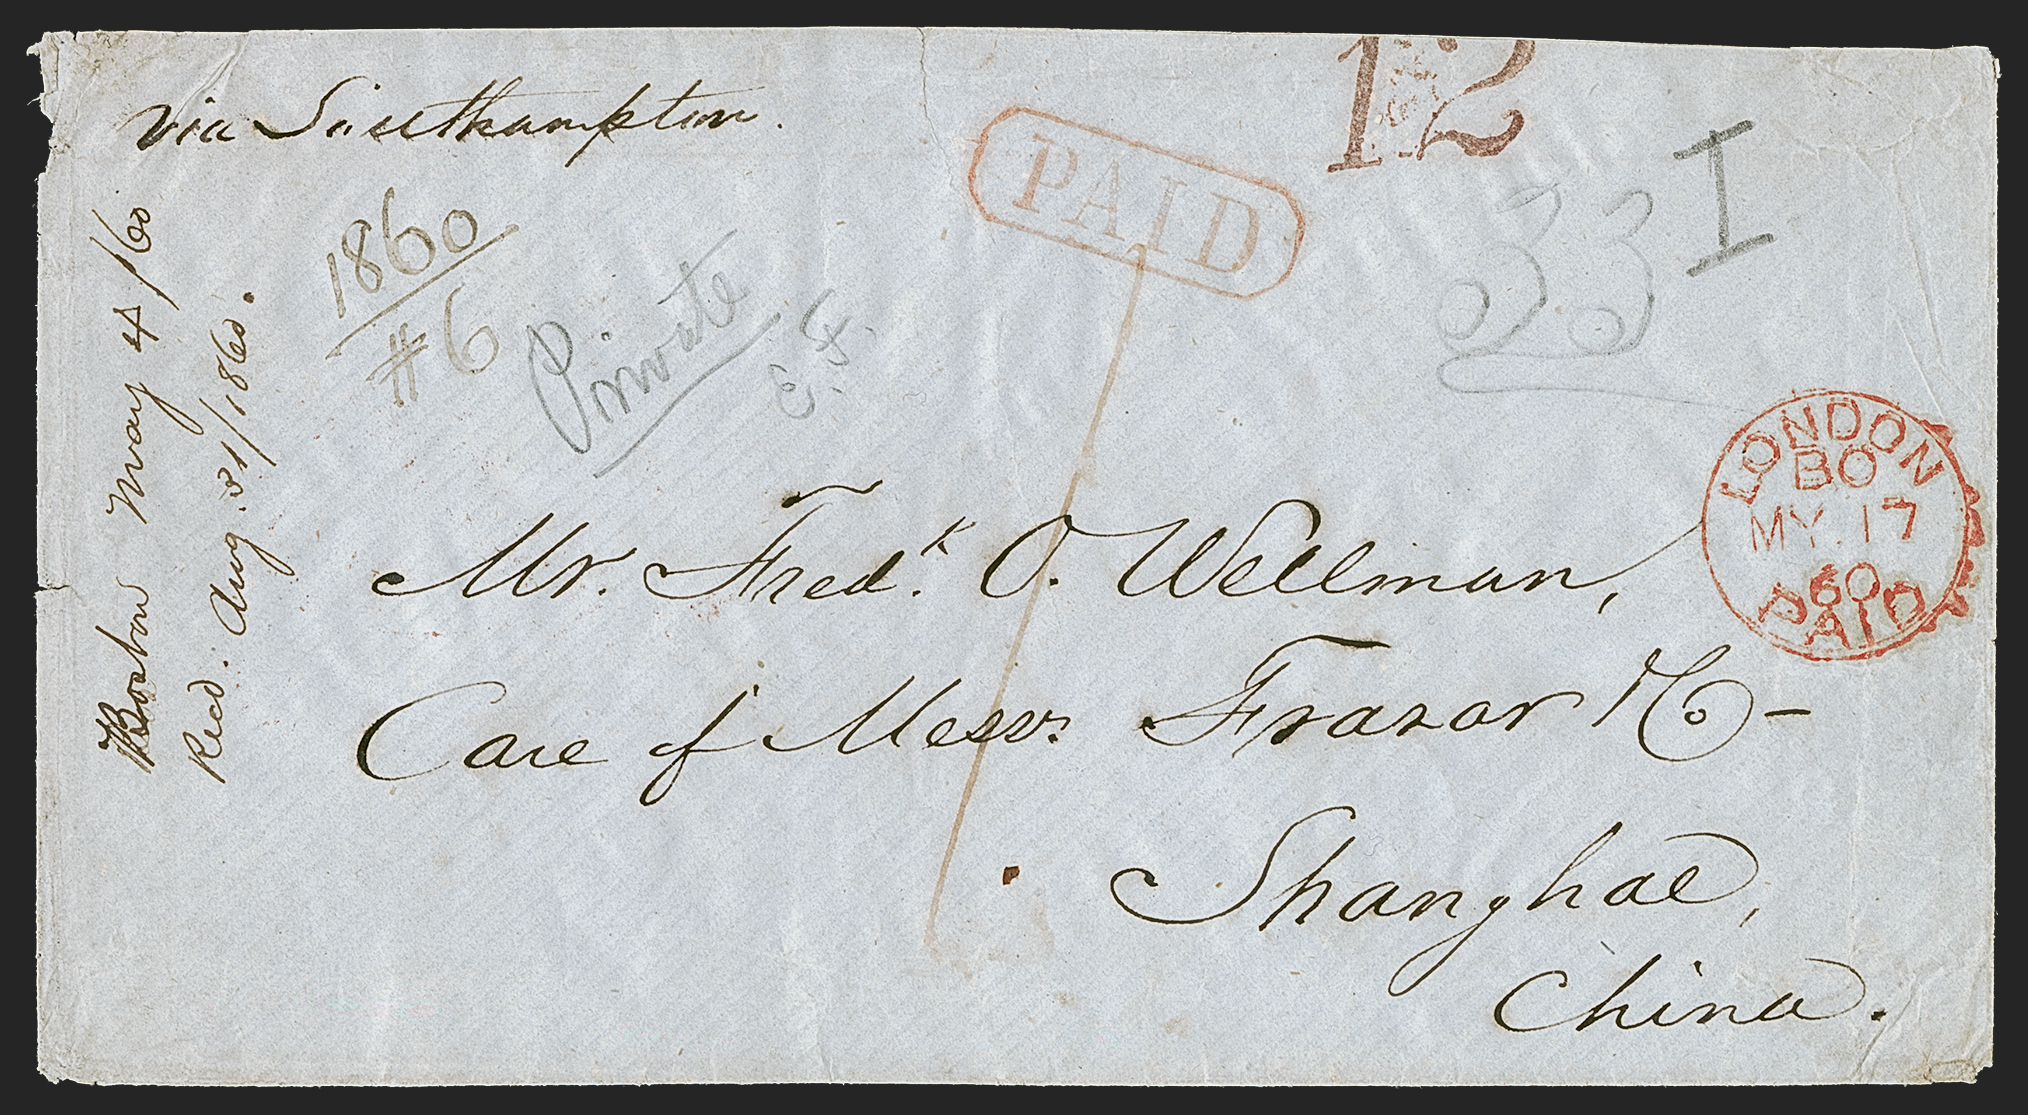 via Southampton.
12
PAID
I
33
1860
#6
Private
E. F.
Boston May 4/60
Recd. Aug. 31/1860.
LONDON
BO
MY. 17
60
PAID
Mr. Fredk. O. Wellman,
Care of Messrs. Frazar & Co -
Shanghae,
China.